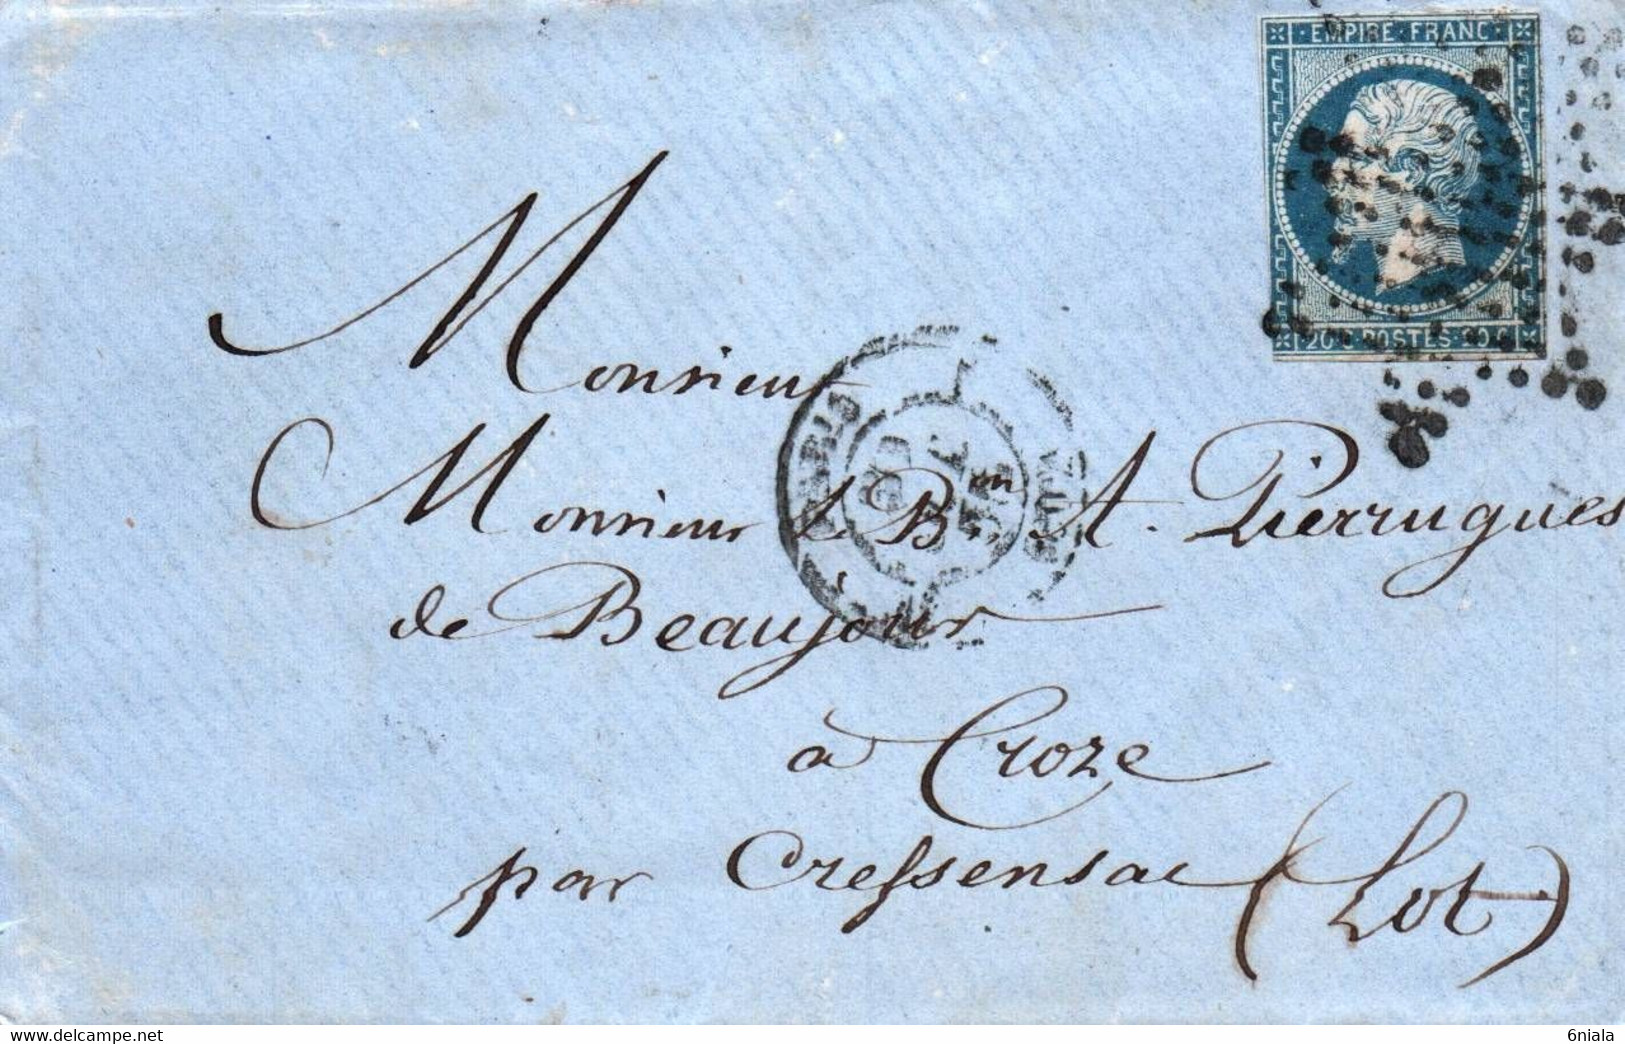 EMPIRE FRANC
20 C POSTES 20 C
Monsieur
Monsieur le Bon A. Pierrugues
de Beaujour
à Croze
par Cressensac (Lot)
PARIS
6niala